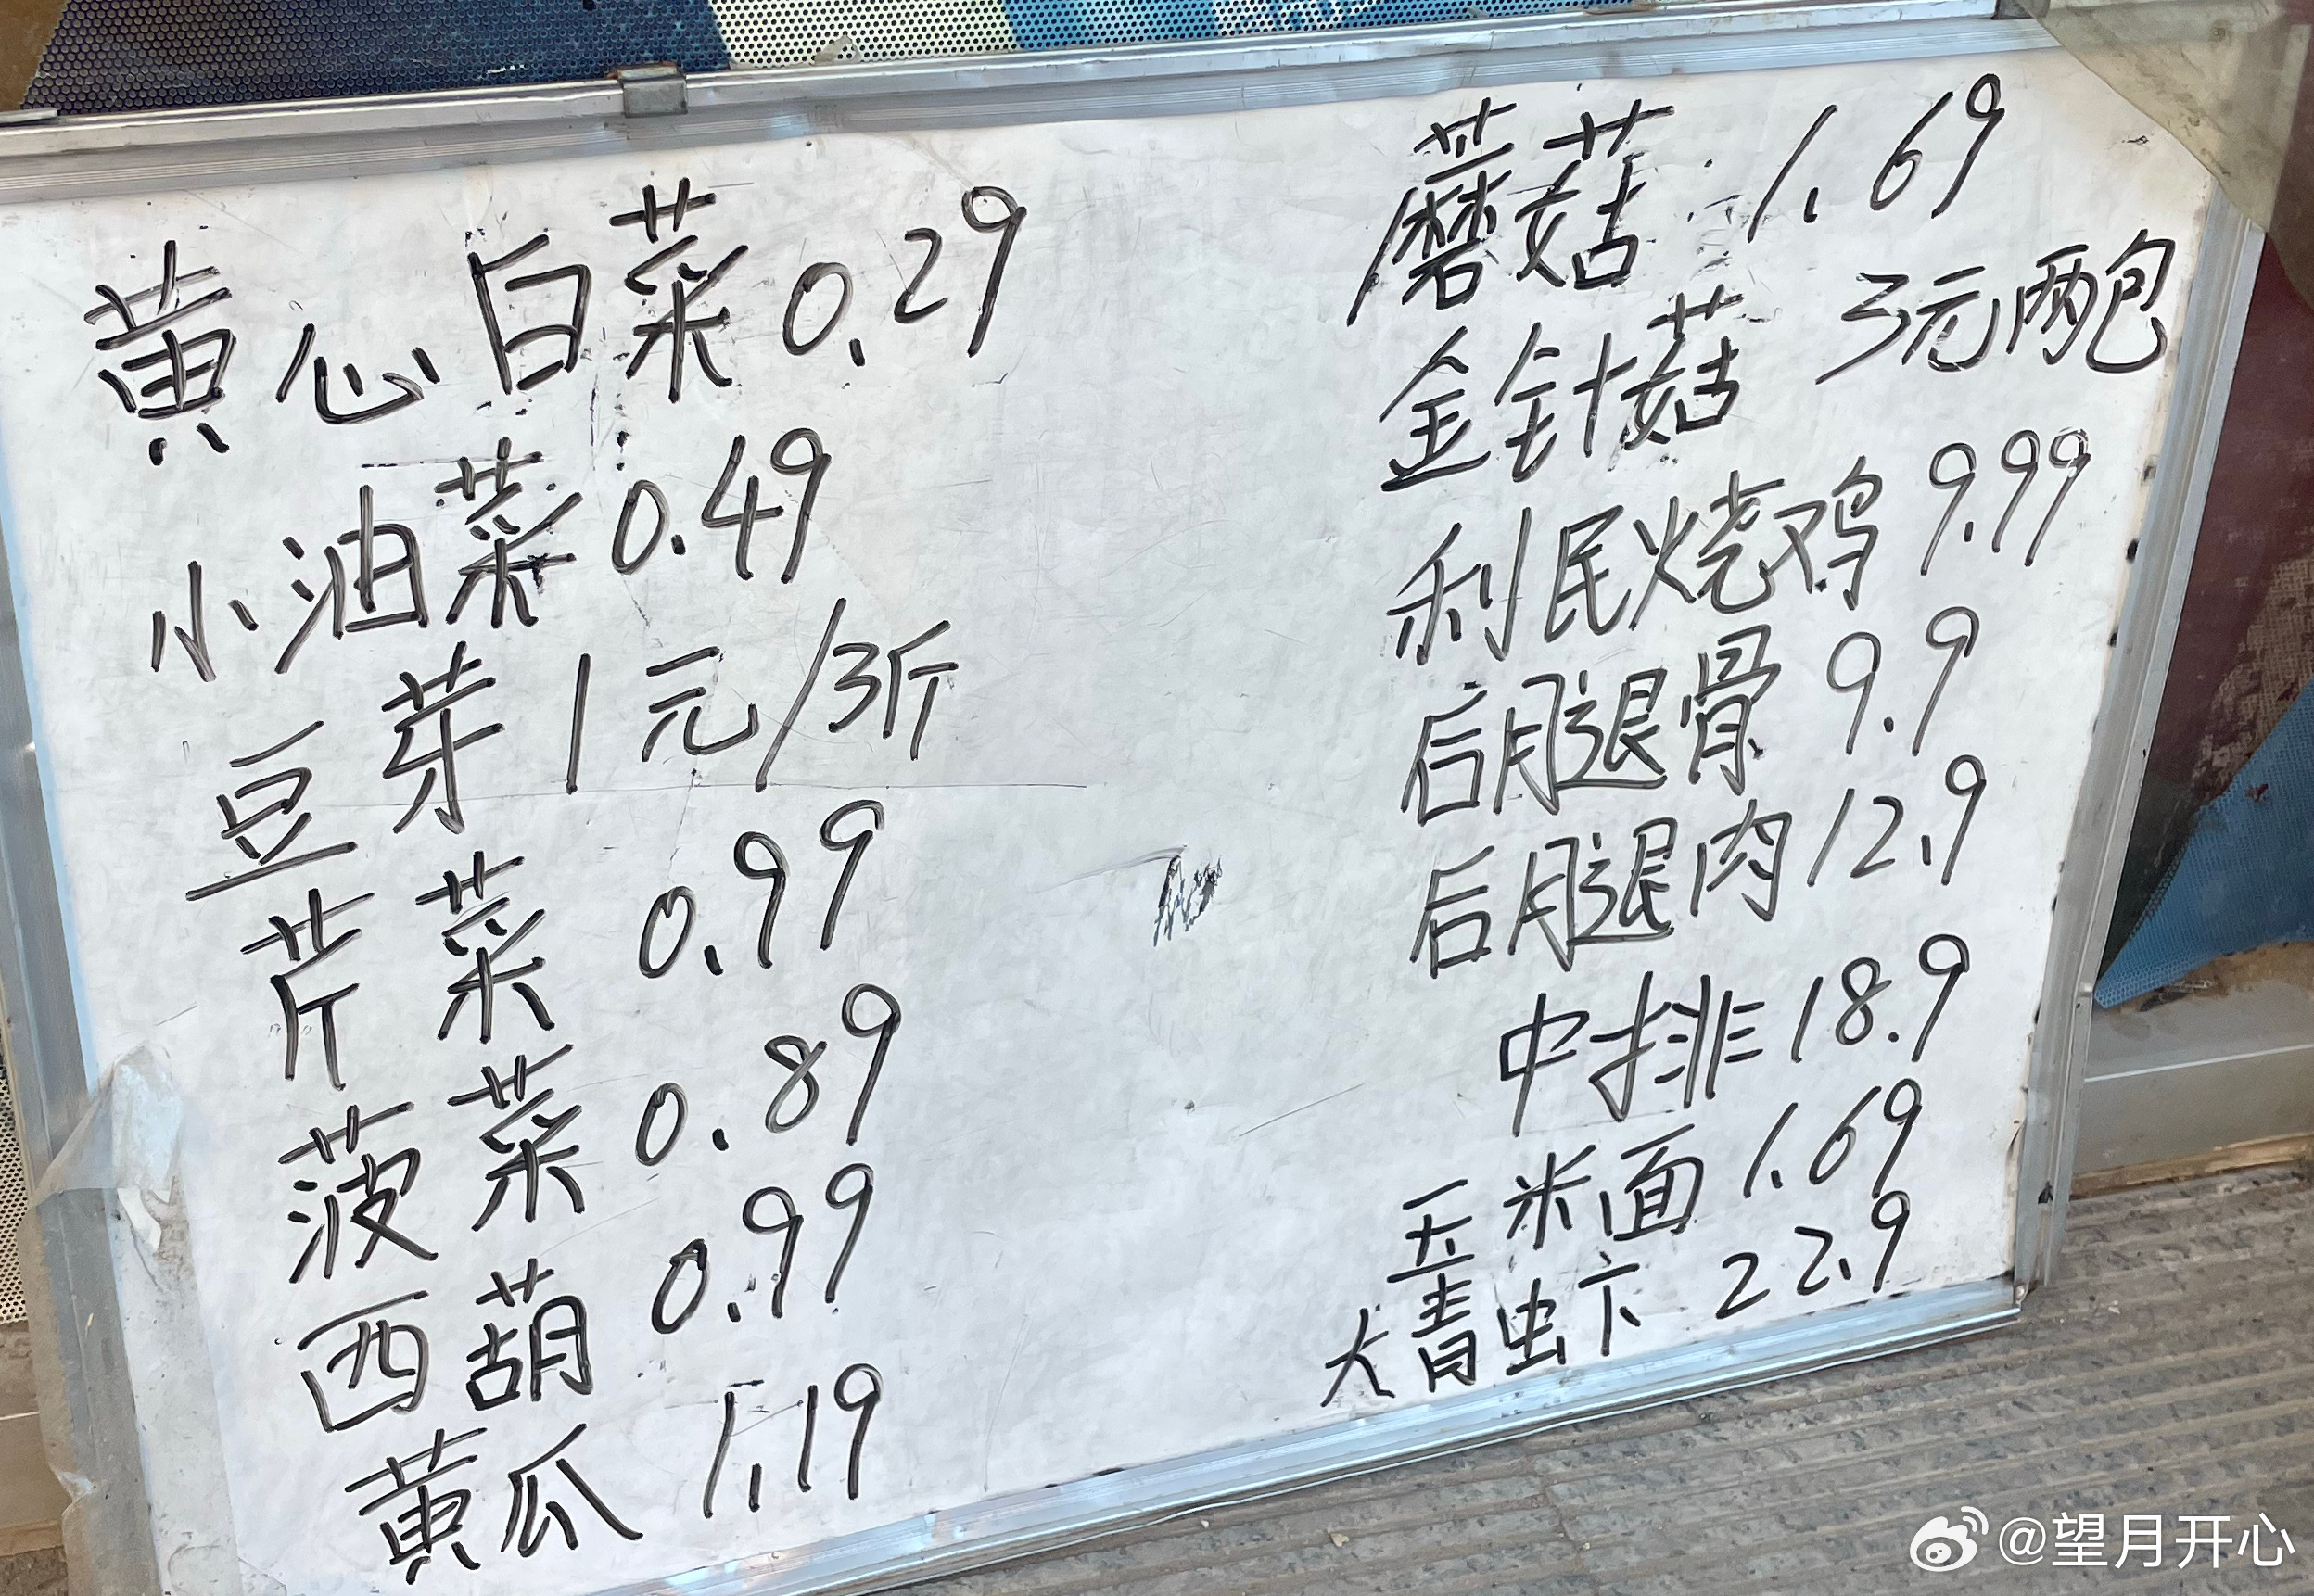 黄心白菜0.29
小油菜0.49
豆芽1元/3斤
芹菜0.99
菠菜0.89
西葫0.99
黄瓜1.19
蘑菇1.69
金针菇 3元两包
利民烧鸡9.99
后腿骨9.9
后腿肉12.9
中排18.9
玉米面1.69
大青虾22.9
@望月开心